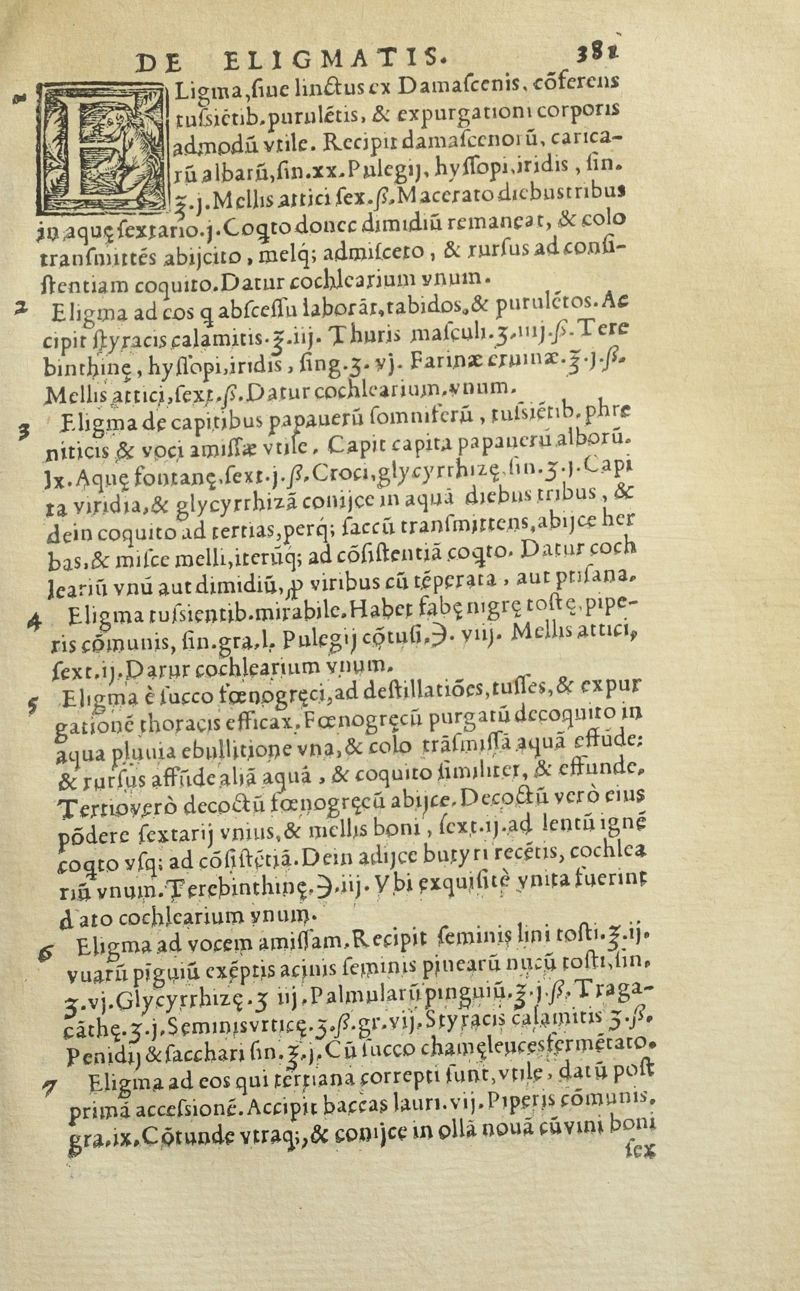 DE ELIGMATIS. 381
ELigma, ſiue linctus ex Damaſcenis, cõferens
tuſsiẽtib. purulẽtis, & expurgationi corporis
admodũ vtile. Recipit damaſcenorũ, carica-
rũ albarũ, ſin.xx. Pulegij, hyſſopi, iridis, ſin.
ʒ.j. Mellis attici ſex.ß. Macerato diebus tribus
in aquę ſextario.j. Coqto donec dimidiũ remaneat, & colo
tranſmittẽs abijcito, melq́; admiſceto, & rurſus ad conſi-
ſtentiam coquito. Datur cochlearium vnum.
2 Eligma ad eos q abſceſſu laborãt, tabidos, & purulẽtos. Ac
cipit ſtyracis calamitis.℥.iij. Thuris maſculi.ʒ.iiij.ß. Tere
binthinę, hyſſopi, iridis, ſing.ʒ.vj. Farinæ eruinæ.℥.j.ß.
Mellis attici, ſext.ß. Datur cochlearium, vnum.
3 Eligma de capitibus papauerũ ſomniferũ, tuſsiẽtib. phre
niticis & voci amiſſæ vtile. Capit capita papauerũ alborũ.
lx. Aquę fontanę, ſext.j.ß. Croci, glycyrrhizę, ſin.ʒ.j. Capi
ta viridia, & glycyrrhizã conijce in aquã diebus tribus, &
dein coquito ad tertias, perq́; ſaccũ tranſmittens, abijce her
bas, & miſce melli, iterũq́; ad cõſiſtentiã coqto. Datur coch
leariũ vnũ aut dimidiũ, ꝓ viribus cũ tẽperata, aut ptiſana.
4 Eligma tuſsientib. mirabile. Habet fabę nigrę toſtę, pipe-
ris cõmunis, ſin.gra.l. Pulegij cõtuſi.℈.viij. Mellis attici,
ſext.ij. Darur cochlearium vnum.
5 Eligma è ſucco fœnogręci, ad deſtillatiões, tuſſes, & expur
gationẽ thoracis efficax. Fœnogręcũ purgatũ decoquito in
aqua pluuia ebullitione vna, & colo trãſmiſſã aquã effude:
& rurſus affũde aliã aquã, & coquito ſimiliter, & effunde.
Tertio verò decoctũ fœnogręcũ abijce. Decoctũ verò eius
põdere ſextarij vnius, & mellis boni, ſext.ij. ad lentũ ignẽ
coqto vſq; ad cõſiſtẽtiã. Dein adijce butyri recẽtis, cochlea
riũ vnum. Terebinthinę.℈.iij. Vbi exquiſitè vnita fuerint
dato cochlearium vnum.
6 Eligma ad vocem amiſſam. Recipit ſeminis lini toſti.℥.ij.
vuarũ pĩguiũ exẽptis acinis ſeminis pinearũ nucũ toſti, ſin.
ʒ.vj. Glycyrrhizę.ʒ iij. Palmularũ pinguiũ.℥.j.ß. Traga-
cãthę.ʒ.j. Seminis vrticę.ʒ.ß.gr.vij. Styracis calamitis ʒ.ß.
Penidij & ſacchari ſin.℥.j. Cũ ſucco chamęleuces fermẽtato.
7 Eligma ad eos qui tertiana correpti ſunt, vtile, datũ poſt
primã acceſsionẽ. Accipit baccas lauri.vij. Piperis cõmunis.
gra.ix. Cõtunde vtraq;, & conijce in ollã nouã cũ vini boni
ſex